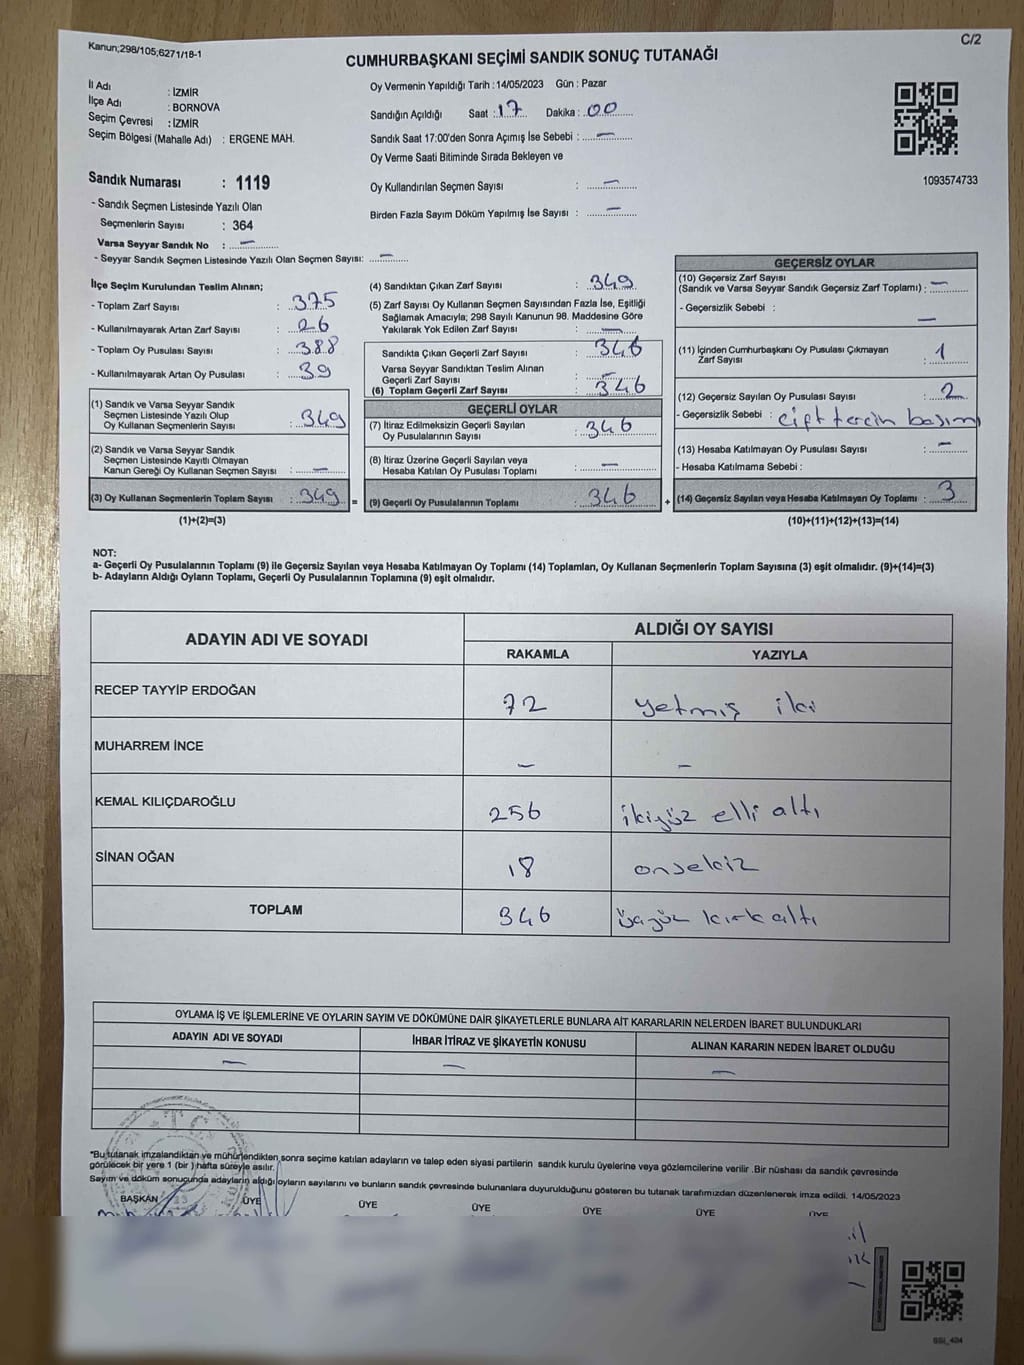 Kanun;298/105;6271/18-1
C/2
CUMHURBAŞKANI SEÇİMİ SANDIK SONUÇ TUTANAĞI
İl Adı : İZMİR
İlçe Adı : BORNOVA
Seçim Çevresi : İZMİR
Seçim Bölgesi (Mahalle Adı) : ERGENE MAH.
Oy Vermenin Yapıldığı Tarih :14/05/2023 Gün : Pazar
Sandığın Açıldığı Saat : 17 Dakika : 00
Sandık Saat 17:00'den Sonra Açımış İse Sebebi : —
Oy Verme Saati Bitiminde Sırada Bekleyen ve
Oy Kullandırılan Seçmen Sayısı : —
Birden Fazla Sayım Döküm Yapılmış İse Sayısı : —
1093574733
Sandık Numarası : 1119
- Sandık Seçmen Listesinde Yazılı Olan
Seçmenlerin Sayısı : 364
Varsa Seyyar Sandık No : —
- Seyyar Sandık Seçmen Listesinde Yazılı Olan Seçmen Sayısı: —
İlçe Seçim Kurulundan Teslim Alınan;
- Toplam Zarf Sayısı : 375
- Kullanılmayarak Artan Zarf Sayısı : 26
- Toplam Oy Pusulası Sayısı : 388
- Kullanılmayarak Artan Oy Pusulası : 39
(1) Sandık ve Varsa Seyyar Sandık
Seçmen Listesinde Yazılı Olup
Oy Kullanan Seçmenlerin Sayısı : 349
(2) Sandık ve Varsa Seyyar Sandık
Seçmen Listesinde Kayıtlı Olmayan
Kanun Gereği Oy Kullanan Seçmen Sayısı : —
(3) Oy Kullanan Seçmenlerin Toplam Sayısı : 349 =
(1)+(2)=(3)
(4) Sandıktan Çıkan Zarf Sayısı : 349
(5) Zarf Sayısı Oy Kullanan Seçmen Sayısından Fazla İse, Eşitliği
Sağlamak Amacıyla; 298 Sayılı Kanunun 98. Maddesine Göre
Yakılarak Yok Edilen Zarf Sayısı : —
Sandıkta Çıkan Geçerli Zarf Sayısı : 346
Varsa Seyyar Sandıktan Teslim Alınan
Geçerli Zarf Sayısı : —
(6) Toplam Geçerli Zarf Sayısı : 346
GEÇERLİ OYLAR
(7) İtiraz Edilmeksizin Geçerli Sayılan
Oy Pusulalarının Sayısı : 346
(8) İtiraz Üzerine Geçerli Sayılan veya
Hesaba Katılan Oy Pusulası Toplamı : —
(9) Geçerli Oy Pusulalarının Toplamı : 346 +
GEÇERSİZ OYLAR
(10) Geçersiz Zarf Sayısı
(Sandık ve Varsa Seyyar Sandık Geçersiz Zarf Toplamı) : —
- Geçersizlik Sebebi : —
(11) İçinden Cumhurbaşkanı Oy Pusulası Çıkmayan
Zarf Sayısı : 1
(12) Geçersiz Sayılan Oy Pusulası Sayısı : 2
- Geçersizlik Sebebi : çift tercih basımı
(13) Hesaba Katılmayan Oy Pusulası Sayısı : —
- Hesaba Katılmama Sebebi :
(14) Geçersiz Sayılan veya Hesaba Katılmayan Oy Toplamı : 3
(10)+(11)+(12)+(13)=(14)
NOT:
a- Geçerli Oy Pusulalarının Toplamı (9) ile Geçersiz Sayılan veya Hesaba Katılmayan Oy Toplamı (14) Toplamları, Oy Kullanan Seçmenlerin Toplam Sayısına (3) eşit olmalıdır. (9)+(14)=(3)
b- Adayların Aldığı Oyların Toplamı, Geçerli Oy Pusulalarının Toplamına (9) eşit olmalıdır.
ADAYIN ADI VE SOYADI ALDIĞI OY SAYISI
RAKAMLA YAZIYLA
RECEP TAYYİP ERDOĞAN 72 yetmiş iki
MUHARREM İNCE — —
KEMAL KILIÇDAROĞLU 256 ikiyüz elli altı
SİNAN OĞAN 18 onsekiz
TOPLAM 346 üçyüz kırk altı
OYLAMA İŞ VE İŞLEMLERİNE VE OYLARIN SAYIM VE DÖKÜMÜNE DAİR ŞİKAYETLERLE BUNLARA AİT KARARLARIN NELERDEN İBARET BULUNDUKLARI
ADAYIN ADI VE SOYADI İHBAR İTİRAZ VE ŞİKAYETİN KONUSU ALINAN KARARIN NEDEN İBARET OLDUĞU
— — —
"Bu tutanak imzalandıktan ve mühürlendikten sonra seçime katılan adayların ve talep eden siyasi partilerin sandık kurulu üyelerine veya gözlemcilerine verilir .Bir nüshası da sandık çevresinde
görülecek bir yere 1 (bir ) hafta süreyle asılır.
Sayım ve döküm sonucunda adayların aldığı oyların sayılarını ve bunların sandık çevresinde bulunanlara duyurulduğunu gösteren bu tutanak tarafımızdan düzenlenerek imza edildi. 14/05/2023
BAŞKAN ÜYE ÜYE ÜYE ÜYE ÜYE ÜYE
T.C.